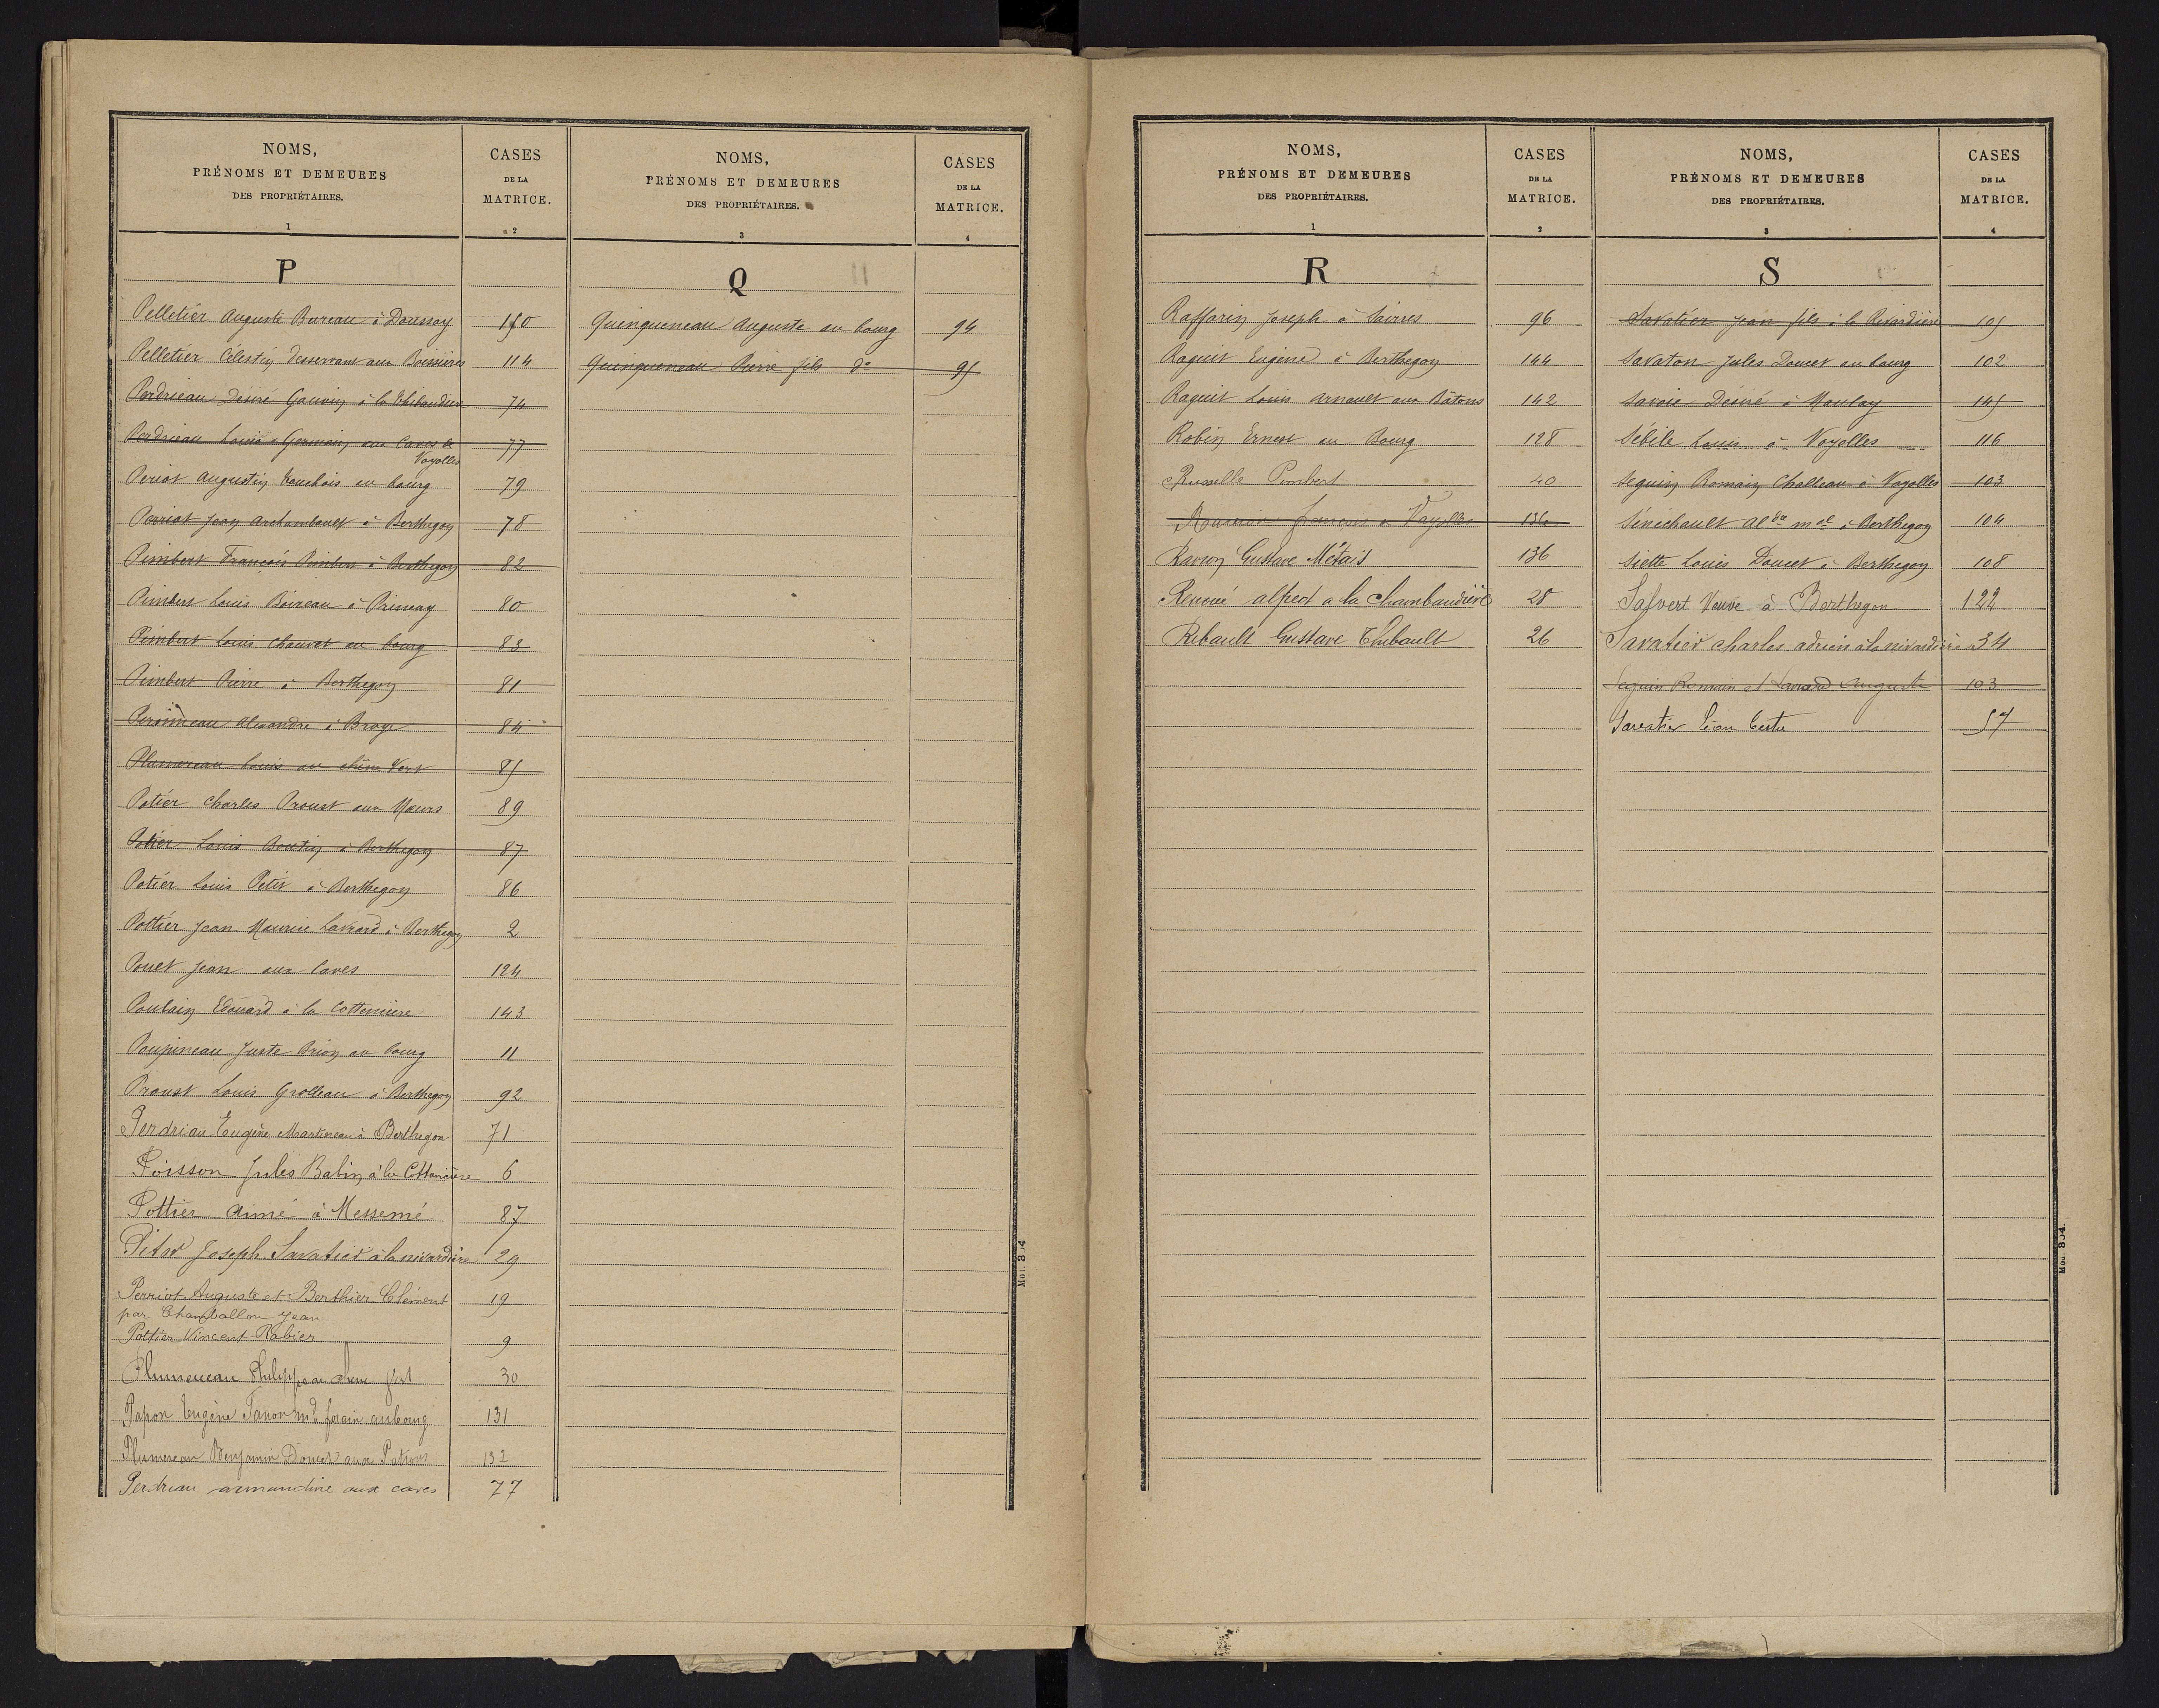 NOMS,
PRÉNOMS ET DEMEURES
DES PROPRIÉTAIRES.
1
CASES
DE LA
MATRICE.
2
P
Pelletier Auguste Bureau à Doussay 150
Pelletier Célestin desservant aux Boissières 114
Perdrieau Désiré Gauvin à la Thibaudière 74
Perdrieau Louis Germain aux Caves de Vayolles 77
Periot Augustin Bauchois au bourg 79
Perriot Jean Archambault à Berthegon 78
Pimbert François Pimbert à Berthegon 82
Pimbert Louis Boireau à Prinçay 80
Pimbert Louis Chauvet au bourg 83
Pimbert Pierre à Berthegon 81
alexandre à Broye 84
Plumereau Louis au chêne Vert 85
Potier Charles Proust aux Maurs 89
Potier Louis Boutin à Berthegon 87
Potier Louis Petit à Berthegon 86
Pottier Jean Maurice Lavrard à Berthegon 2
Pouet Jean aux Caves 124
Poulain Edouard à la Cottenière 143
Poupineau Juste Brion au bourg 11
Proust Louis Grolleau à Berthegon 92
Perdriau Eugène Martineau à Berthegon 71
Poisson Jules Babin à la Cottancière 6
Pottier Aimé à Messemé 87
Joseph Savatier à la nivardière 29
Perriot Auguste et Berthier Clément 19
par Champallon Jean
Pottier Vincent Rabier 9
Plumereau Philippe au chene vert 30
Papon Eugène Tanon md forain au bourg 131
Plumereau Benjamin Doucet aux Patrons 132
Perdriau armandine aux caves 77
NOMS,
PRÉNOMS ET DEMEURES
DES PROPRIÉTAIRES.
3
CASES
DE LA
MATRICE.
4
Q
Quinqueneau Auguste au bourg 94
Quinqueneau Pierre fils do 95
Mod. 804
NOMS,
PRÉNOMS ET DEMEURES
DES PROPRIÉTAIRES.
1
CASES
DE LA
MATRICE.
2
R
Raffarin Joseph à Sairres 96
Raguit Eugène à Berthegon 144
Raguit Louis Arnault aux Batons 142
Robin Ernest au Bourg 128
Ruselle Pimbert 40
françois à Vayolles 136
Ravion Gustave Métais 136
Renoué alfred a la Chambaudière 28
Ribault Gustave Thibault 26
NOMS,
PRÉNOMS ET DEMEURES
DES PROPRIÉTAIRES.
3
CASES
DE LA
MATRICE.
4
S
Savatier Jean fils à la Nivardière 105
Savaton Jules Doucet au bourg 102
Savoie Désiré à Maulay 145
Sébile Louis à Vayolles 116
Seguin Romain Cholleau à Vayolles 103
Sénéchault Aldre mal à Berthegon 104
Siette Louis Doucet à Berthegon 108
Salvert Veuve à Berthegon 122
Savatier Charles adrien à la nivardière 34
Seguin Romain et Lavrard Auguste 103
Savatier Léon Cestu 57
Mod. 804.